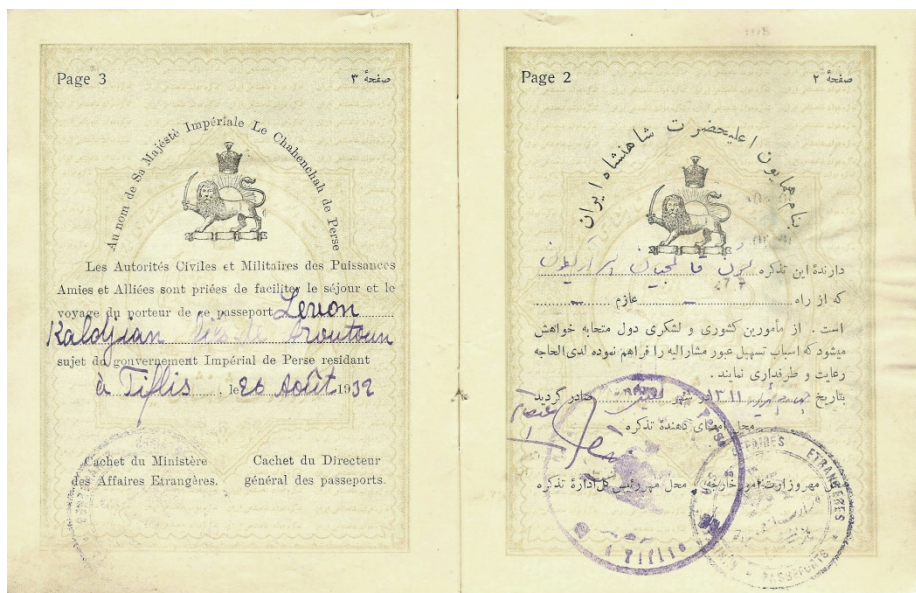 Page 3
صفحهٔ ۳
Au nom de Sa Majesté Impériale Le Chahenchah de Perse
Les Autorités Civiles et Militaires des Puissances
Amies et Alliées sont priées de faciliter le séjour et le
voyage du porteur de ce passeport Levon
Kalodjian
sujet du gouvernement Impérial de Perse residant
à Tiflis, le 26 Août 1932
Cachet du Ministère
des Affaires Etrangères.
Cachet du Directeur
général des passeports.
Page 2
صفحهٔ ۲
بنام همایون اعلیحضرت شاهنشاه ایران
دارندهٔ این تذکره
که از راه عازم
است . از مأمورین کشوری و لشکری دول متحابه خواهش
میشود که اسباب تسهیل عبور مشارالیه را فراهم نموده لدی‌الحاجه
رعایت و طرفداری نمایند .
بتاریخ ۱۳۱۱ در شهر تفلیس صادر گردید
محل امضای دهندهٔ تذکره
محل مهر وزارت امور خارجه محل مهر رئیس کل ادارهٔ تذکره
AFFAIRES ETRANGÈRES
PASSEPORTS
A TIFLIS